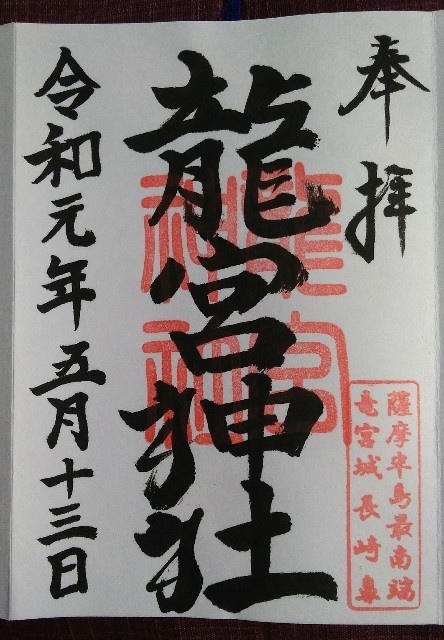 奉拝
龍宮神社
龍宮
神社
薩摩半島最南端
竜宮城長崎鼻
令和元年五月十三日